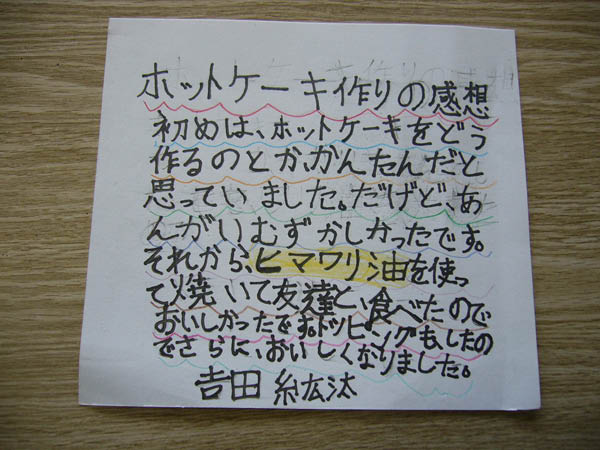 ホットケーキ作りの感想
初めは、ホットケーキをどう
作るのとか、かんたんだと
思っていました。だけど、あ
んがいむずかしかったです。
それから、ヒマワリ油を使っ
て焼いて友達と、食べたので
おいしかったです。トッピングも、したの
でさらに、おいしくなりました。
吉田 紘汰